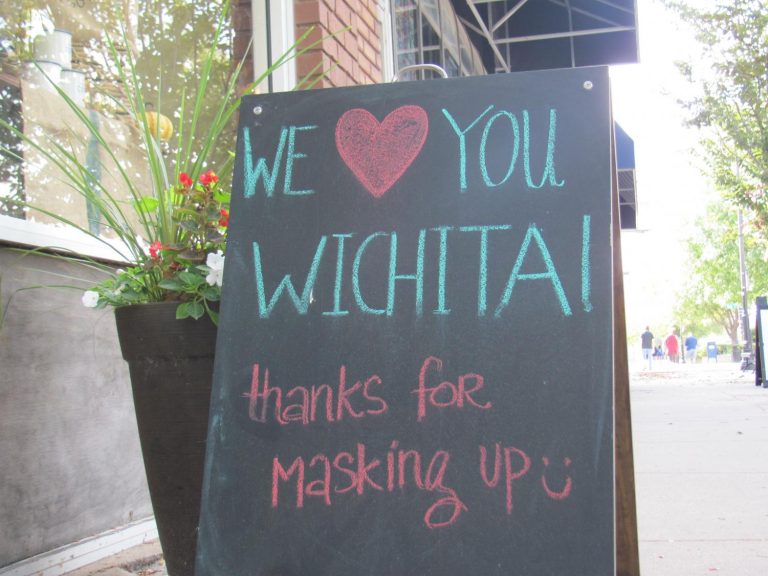 WE ♥ YOU
WICHITA!
thanks for
masking up :)